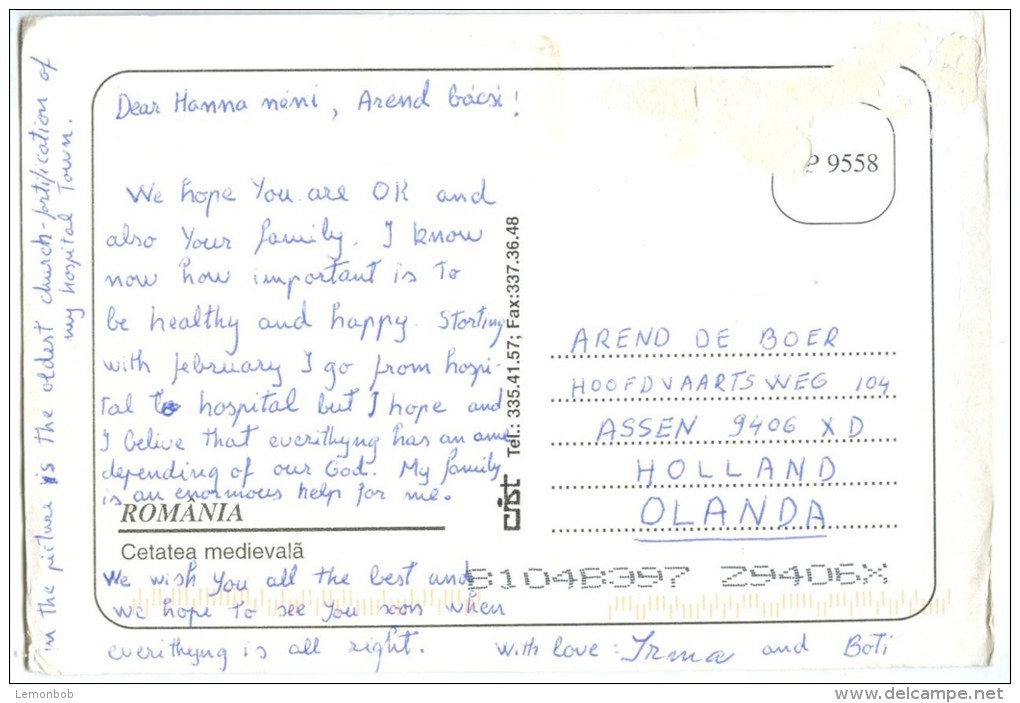 in the picture is the oldest church-fortification of
my hospital Town.
Dear Hanna néni, Arend bácsi!
We hope You are OK and
also Your family. I know
now how important is to
be healthy and happy. Starting
with february I go from hospi-
tal to hospital but I hope and
I belive that everithyng has an
depending of our God. My family
is an enormous help for me.
ROMÂNIA
Cetatea medievală
We wish You all the best and
we hope to see You soon when
everithyng is all right.
With love: Irma and Boti
Tel.: 335.41.57; Fax:337.36.48
P 9558
AREND DE BOER
HOOFDVAARTSWEG 104
ASSEN 9406 XD
HOLLAND
OLANDA
B104B397 Z9406X
Lemonbob
www.delcampe.net